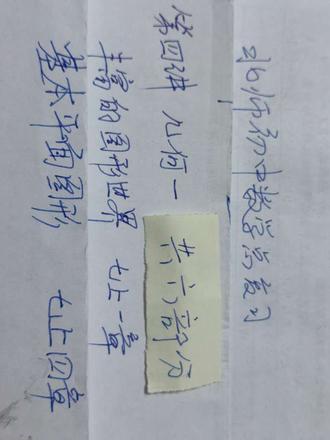 北师初中数学总复习
第四讲 几何一
共六部分
丰富的图形世界 七上一章
基本平面图形 七上四章